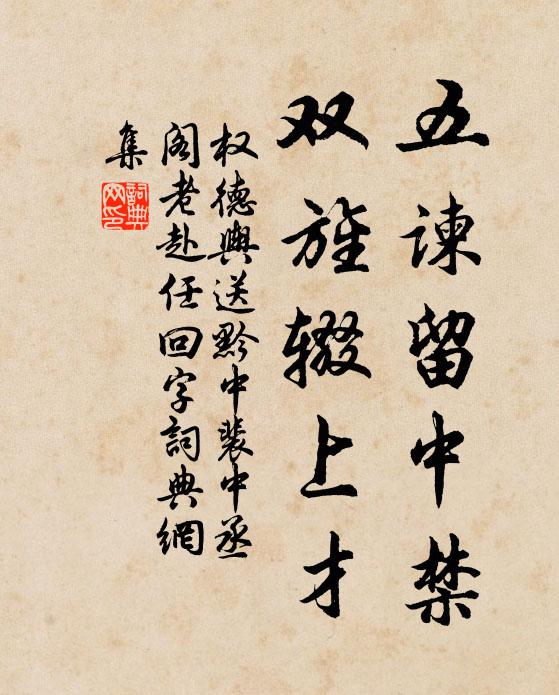 五谏留中禁
双旌辍上才
权德舆送黔中裴中丞
阁老赴任回字詞典網
集
詞典网印